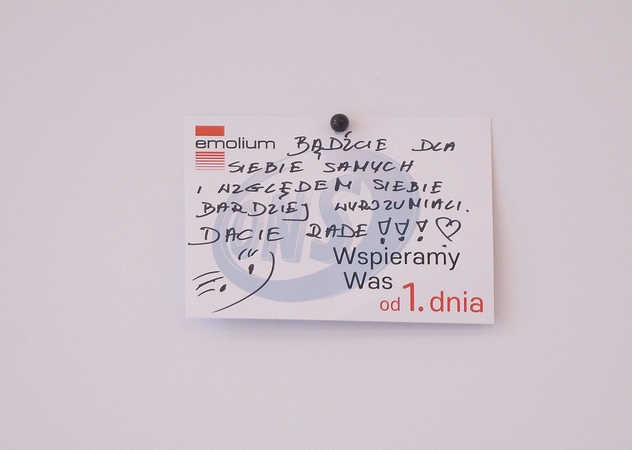 emolium BĄDŹCIE DLA
SIEBIE SAMYCH
I WZGLĘDEM SIEBIE
BARDZIEJ WYROZUMIALI.
DACIE RADĘ !!! ♡
ONSI
Wspieramy
Was
od 1. dnia